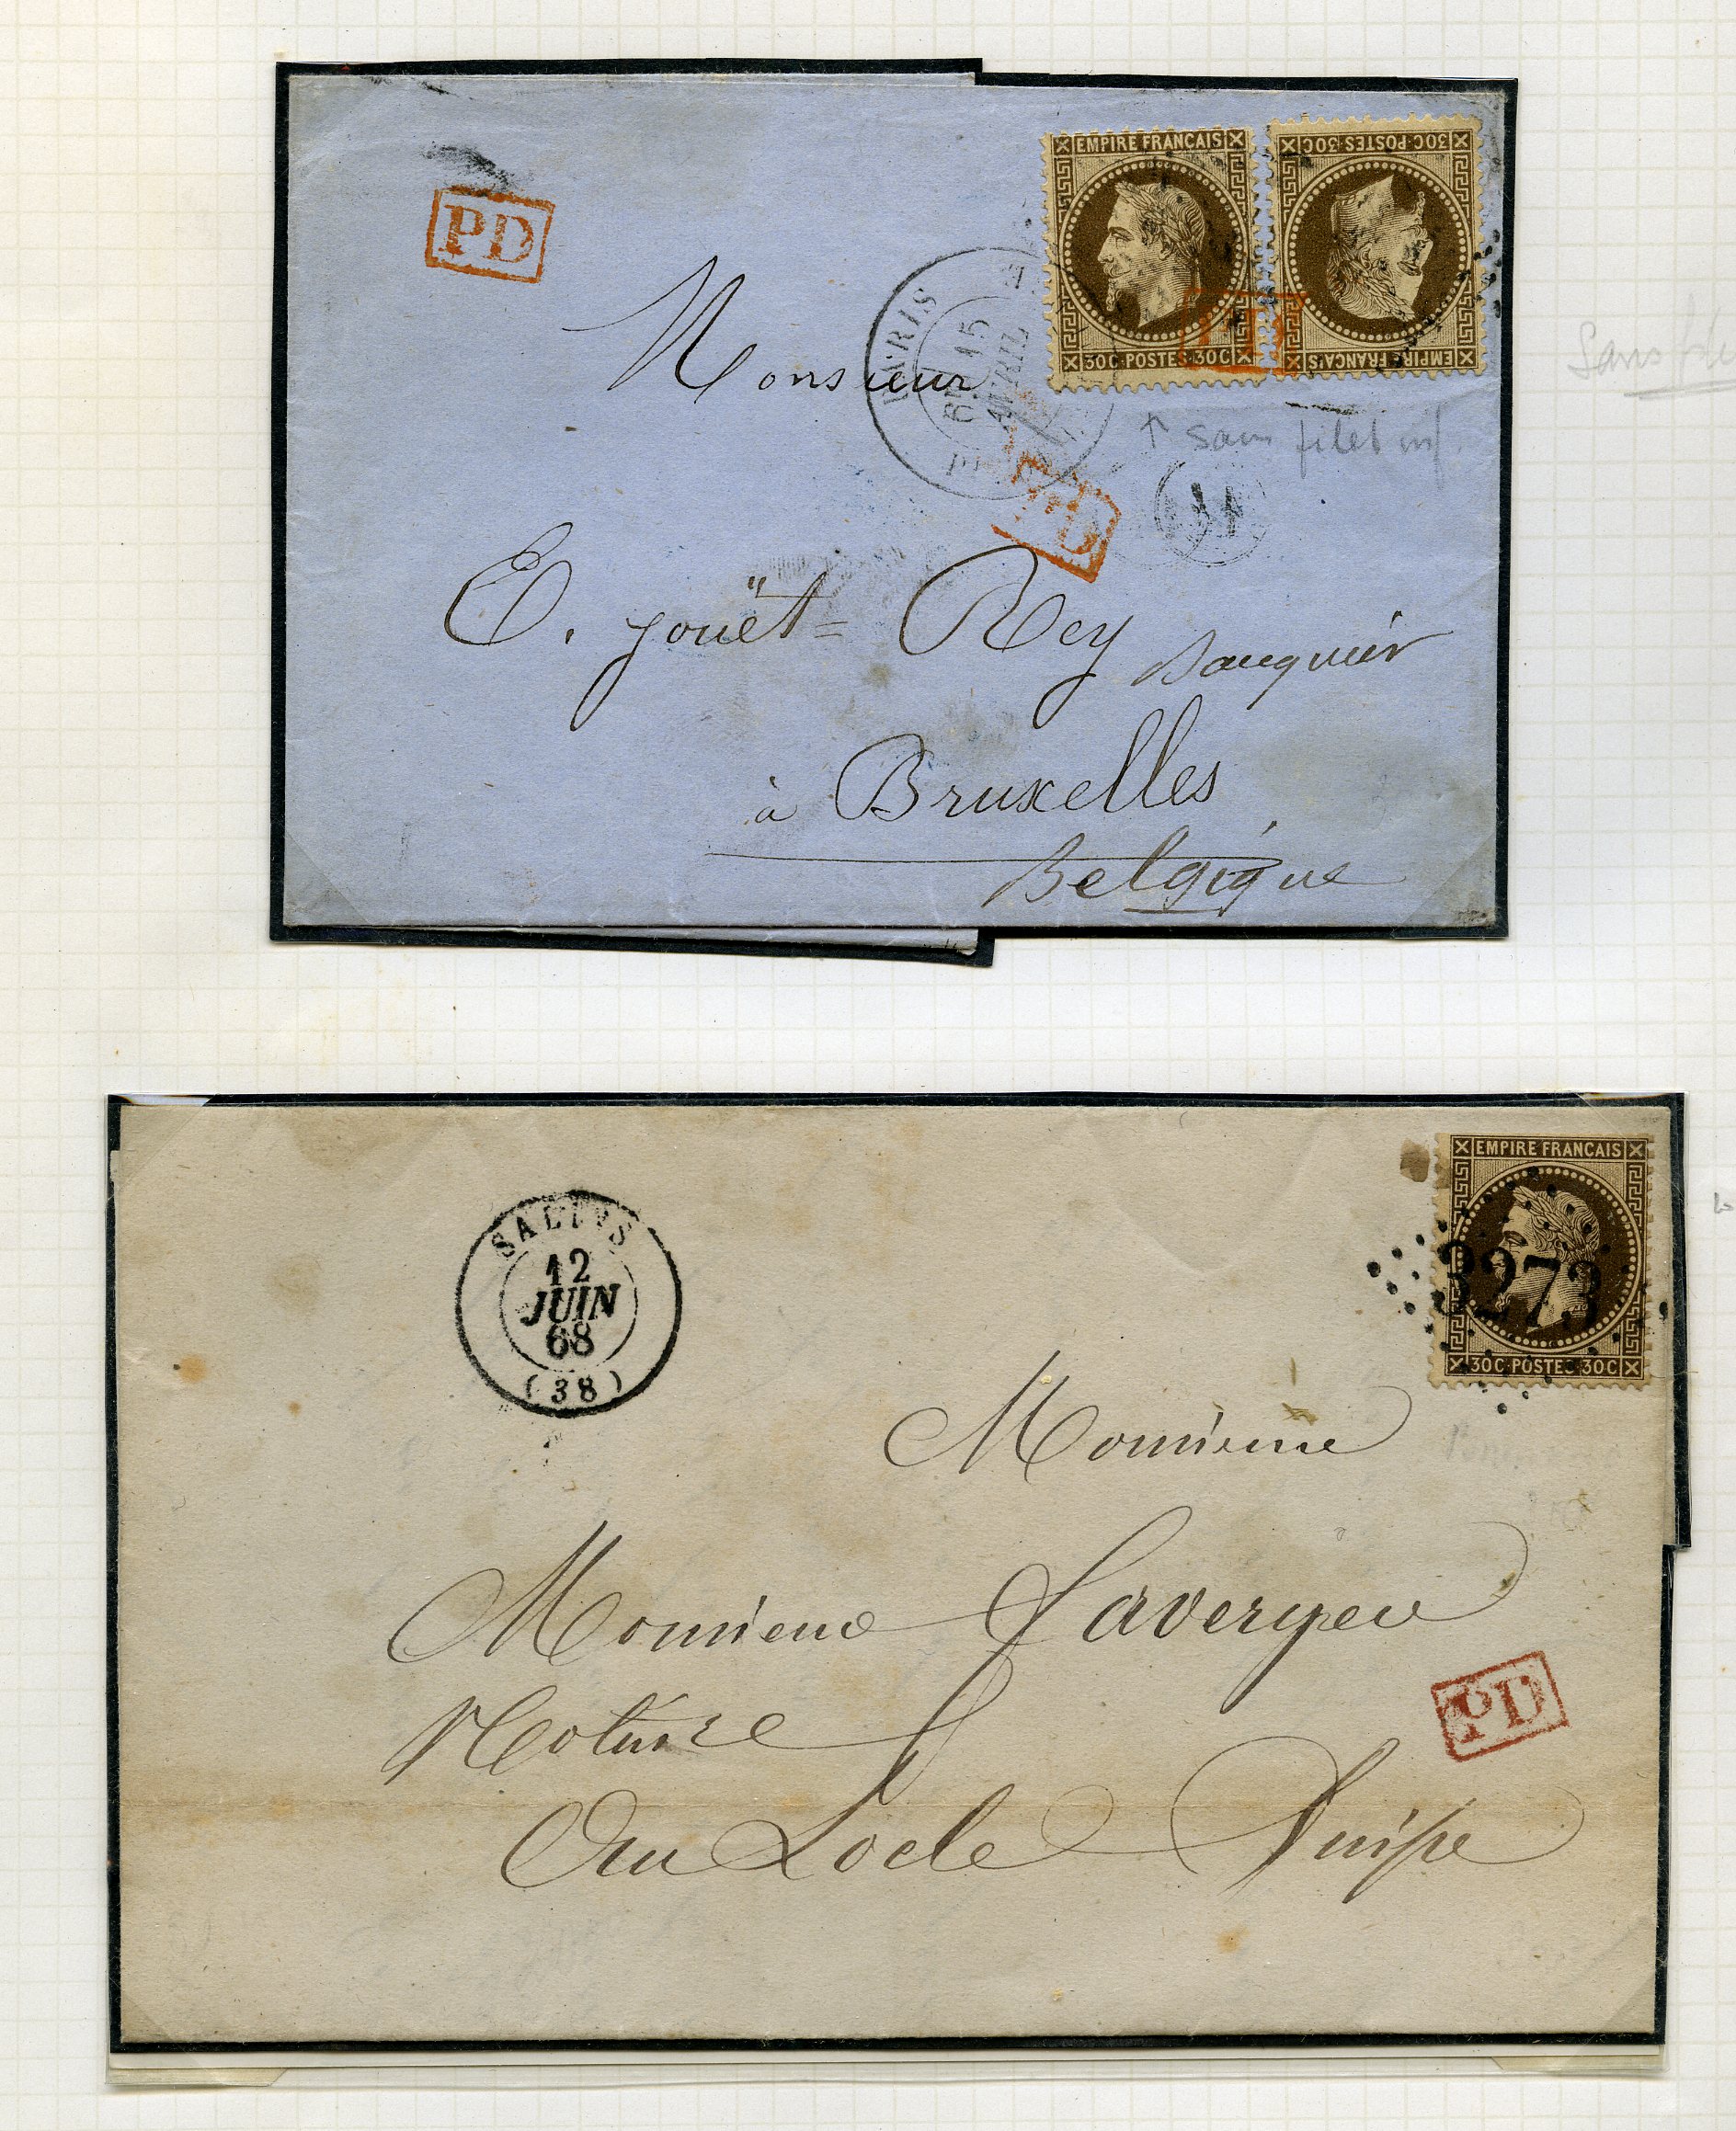 EMPIRE FRANCAIS
30C POSTES 30C
EMPIRE FRANCAIS
30C POSTES 30C
PD
PD
PARIS
15
AVRIL
69
PD
Monsieur
↑ sans filet inf.
Sans
E. Jouët = Rey Banquier
à Bruxelles
Belgique
EMPIRE FRANCAIS
3273
30C POSTES 30C
12
JUIN
68
(38)
Monsieur
Monsieur
Notaire
PD
Au Locle Suisse